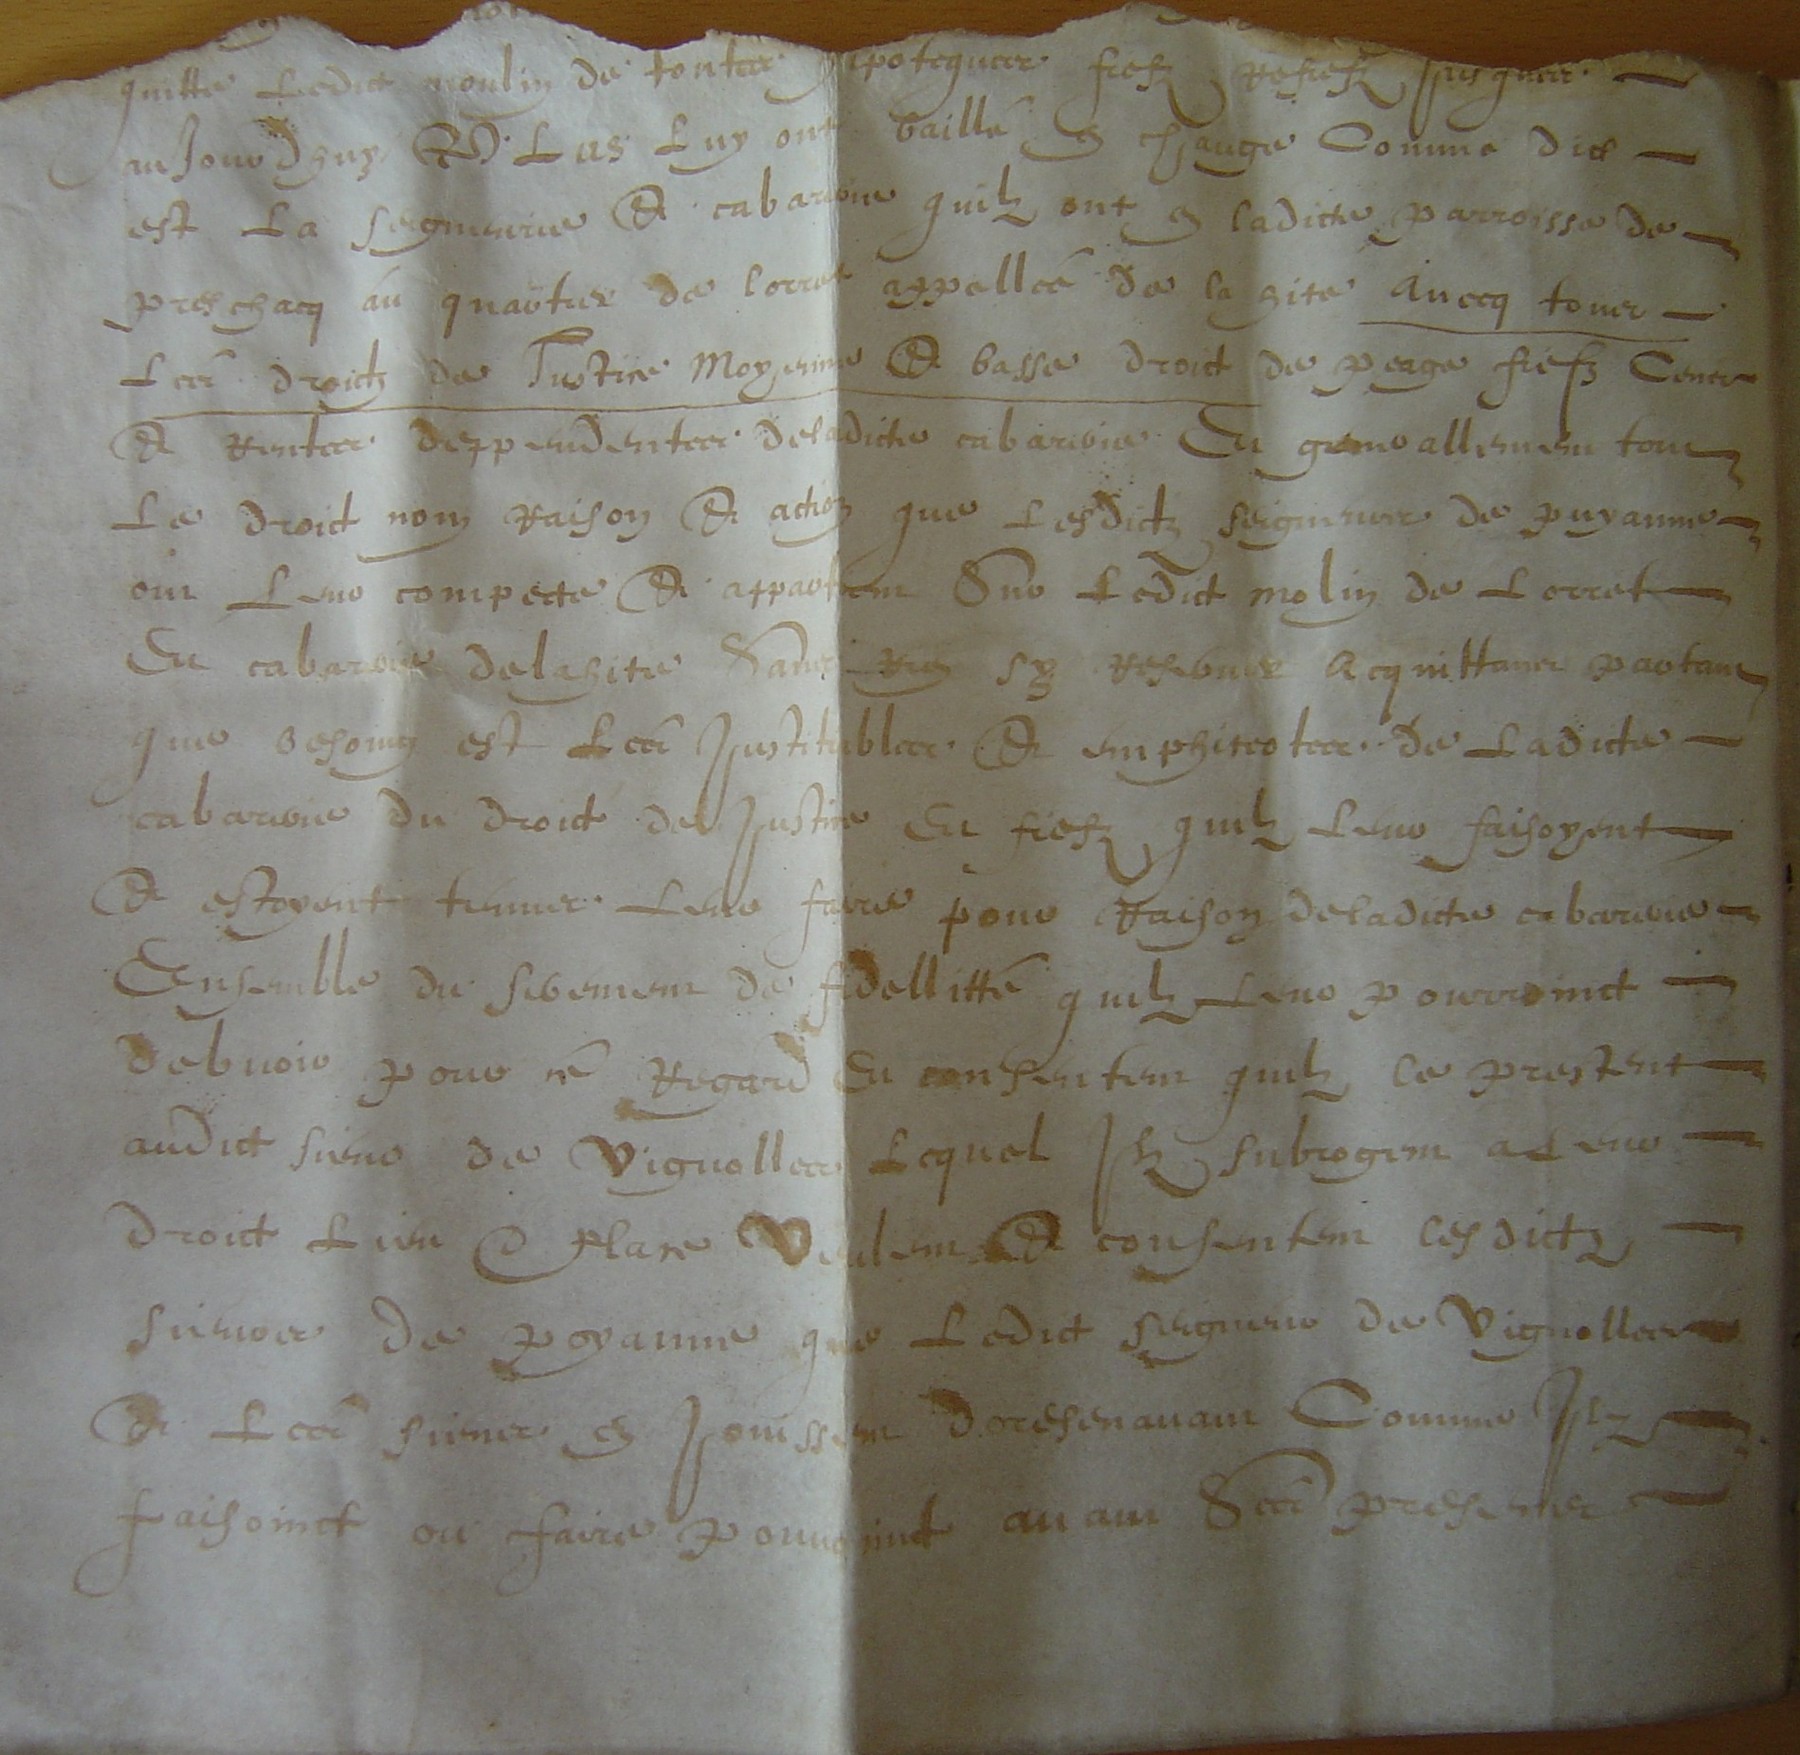 quitte Ledict moulin de toutes ypotequees fiefz Refiefz Jusques
aujourdhuy Et Luy ont baille en eschange Comme dict
est La seigneurie Et cabarerie quilz ont en ladicte parroisse de
preschacq au quartier de lorret appellée de la hite Avecq toutes
Les droictz de Justice Moyenne Et basse droict de peage fiefz Cences
Et Rentes deppendentes deladicte cabarerie Et generallement tout
Le droict nom Raison Et action que Lesdictz seigneurs de puyanne
ou Leur compecte Et appartient Sur Ledict molin de Lorret
Et cabarerie delahite Sans Rien sy Reserver Acquittant partant
que besoing est Les Justitiables Et emphiteotes de Ladicte
cabarerie du droict de Justice Et fiefz quilz Leur faisoyent
Et estoyent tenues Leur faire pour Raison deladicte cabarerie
Ensemble du serement de fidellitté quilz Leur pourroinct
debvoir pour ce Regard Et consentent quilz le prestent
audict sieur de Vignolles Lequel Ilz subrogent a Leur
droict Lieu Et place Veulent Et consentent lesdictz
sieurs de poyanne que Ledict seigneur de Vignolles
Et Les siens en Jouissent doresenavant Comme Ilz
faisoinct ou faire pouvoinct avant Ses presentes